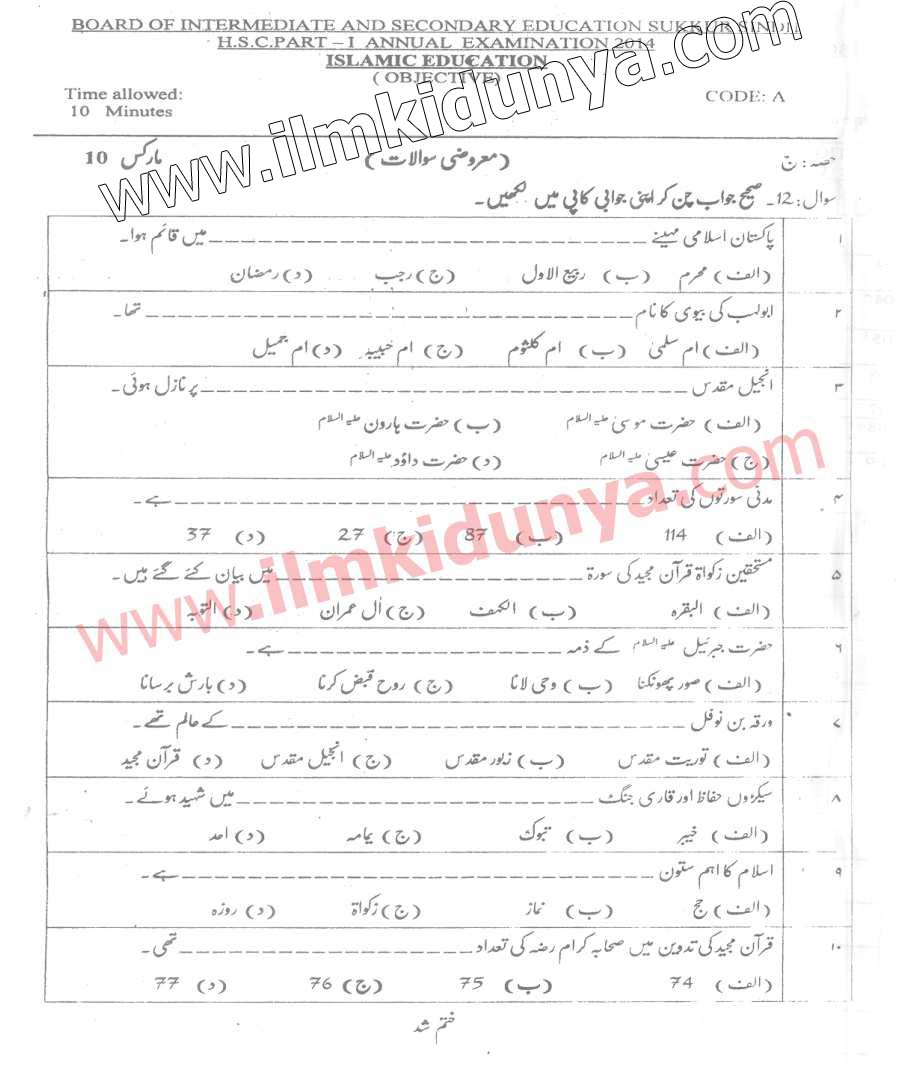 BOARD OF INTERMEDIATE AND SECONDARY EDUCATION SUKKUR SINDH
H.S.C.PART – I ANNUAL EXAMINATION 2014
ISLAMIC EDUCATION
( OBJECTIVE)
Time allowed:
10 Minutes
CODE: A
www.ilmkidunya.com
حصہ : ج ( معروضی سوالات ) مارکس 10
سوال : 12۔ صحیح جواب چن کر اپنی جوابی کاپی میں لکھیں۔
۱ پاکستان اسلامی مہینے ____________ میں قائم ہوا۔
(الف) محرم (ب) ربیع الاول (ج) رجب (د) رمضان
۲ ابولہب کی بیوی کا نام ____________ تھا۔
(الف) ام سلمیٰ (ب) ام کلثوم (ج) ام حبیبہ (د) ام جمیل
۳ انجیل مقدس ____________ پر نازل ہوئی۔
(الف) حضرت موسیٰ علیہ السلام (ب) حضرت ہارون علیہ السلام
(ج) حضرت عیسیٰ علیہ السلام (د) حضرت داؤد علیہ السلام
۴ مدنی سورتوں کی تعداد ____________ ہے۔
(الف) 114 (ب) 87 (ج) 27 (د) 37
www.ilmkidunya.com
۵ مستحقین زکواۃ قرآن مجید کی سورۃ ____________ میں بیان کئے گئے ہیں۔
(الف) البقرہ (ب) الکہف (ج) اٰل عمران (د) التوبہ
۶ حضرت جبرئیل علیہ السلام کے ذمہ ____________ ہے۔
(الف) صور پھونکنا (ب) وحی لانا (ج) روح قبض کرنا (د) بارش برسانا
۷ ورقہ بن نوفل ____________ کے عالم تھے۔
(الف) توریت مقدس (ب) زبور مقدس (ج) انجیل مقدس (د) قرآن مجید
۸ سیکڑوں حفاظ اور قاری جنگ ____________ میں شہید ہوئے۔
(الف) خیبر (ب) تبوک (ج) یمامہ (د) احد
۹ اسلام کا اہم ستون ____________ ہے۔
(الف) حج (ب) نماز (ج) زکواۃ (د) روزہ
۱۰ قرآن مجید کی تدوین میں صحابہ کرام رضہ کی تعداد ____________ تھی۔
(الف) 74 (ب) 75 (ج) 76 (د) 77
ختم شد